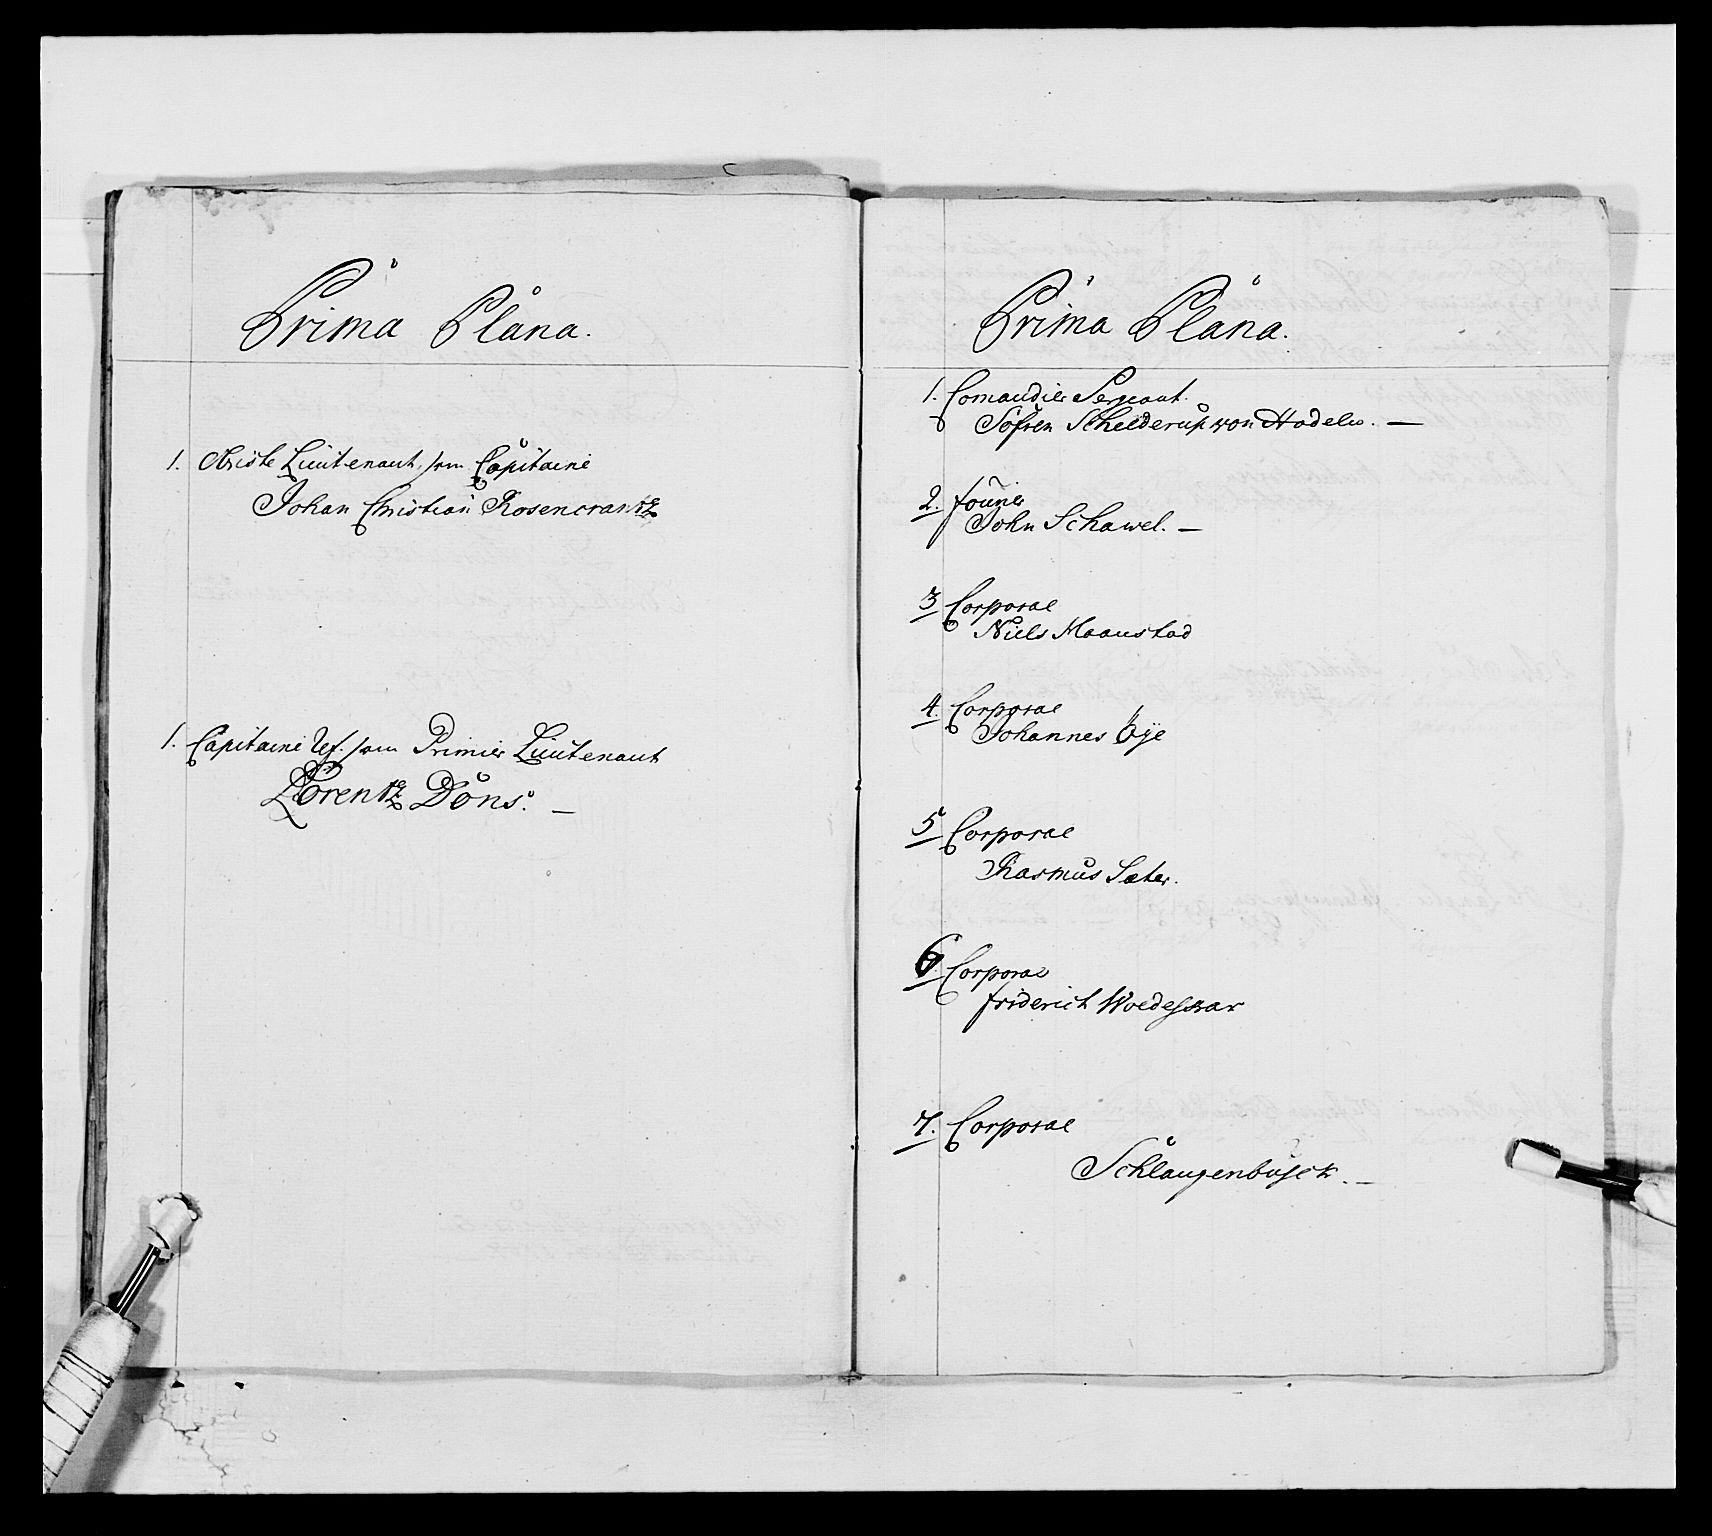 Prima Plana.
1. Obriste Lieutenant, som Capitaine
Johan Christian Rosencrantz
1. Capitaine Rf. som Primier Lieutenant
Lorentz Döns. —
Prima Plana.
1. Comandier Sergeant.
Sofren Schelderup von Hadeln. —
2. fourier
John Schawel. —
3 Corporal
Niels Maanstad
4. Corporal
Johannes Øye
5 Corporal
Rasmus Sæter.
6 Corporal
friderich Woedeskar
7. Corporal
Schlangenbusck. —